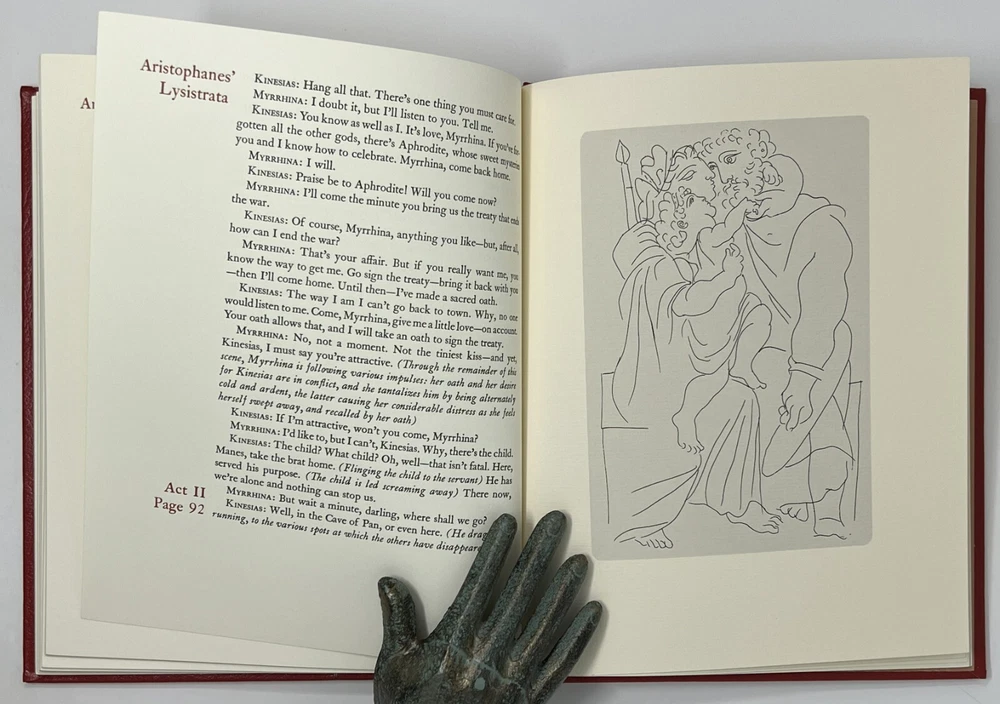 Aristophanes'
Lysistrata
KINESIAS: Hang all that. There's one thing you must care for.
MYRRHINA: I doubt it, but I'll listen to you. Tell me.
KINESIAS: You know as well as I. It's love, Myrrhina. If you've for-
gotten all the other gods, there's Aphrodite, whose sweet mysteries
you and I know how to celebrate. Myrrhina, come back home.
MYRRHINA: I will.
KINESIAS: Praise be to Aphrodite! Will you come now?
MYRRHINA: I'll come the minute you bring us the treaty that ends
the war.
KINESIAS: Of course, Myrrhina, anything you like—but, after all,
how can I end the war?
MYRRHINA: That's your affair. But if you really want me, you
know the way to get me. Go sign the treaty—bring it back with you
—then I'll come home. Until then—I've made a sacred oath.
KINESIAS: The way I am I can't go back to town. Why, no one
would listen to me. Come, Myrrhina, give me a little love—on account.
Your oath allows that, and I will take an oath to sign the treaty.
MYRRHINA: No, not a moment. Not the tiniest kiss—and yet,
Kinesias, I must say you're attractive. (Through the remainder of this
scene, Myrrhina is following various impulses: her oath and her desire
for Kinesias are in conflict, and she tantalizes him by being alternately
cold and ardent, the latter causing her considerable distress as she feels
herself swept away, and recalled by her oath)
KINESIAS: If I'm attractive, won't you come, Myrrhina?
MYRRHINA: I'd like to, but I can't, Kinesias. Why, there's the child.
KINESIAS: The child? What child? Oh, well—that isn't fatal. Here,
Manes, take the brat home. (Flinging the child to the servant) He has
served his purpose. (The child is led screaming away) There now,
we're alone and nothing can stop us.
MYRRHINA: But wait a minute, darling, where shall we go?
KINESIAS: Well, in the Cave of Pan, or even here. (He drag
running, to the various spots at which the others have disappear
Act II
Page 92
Ar